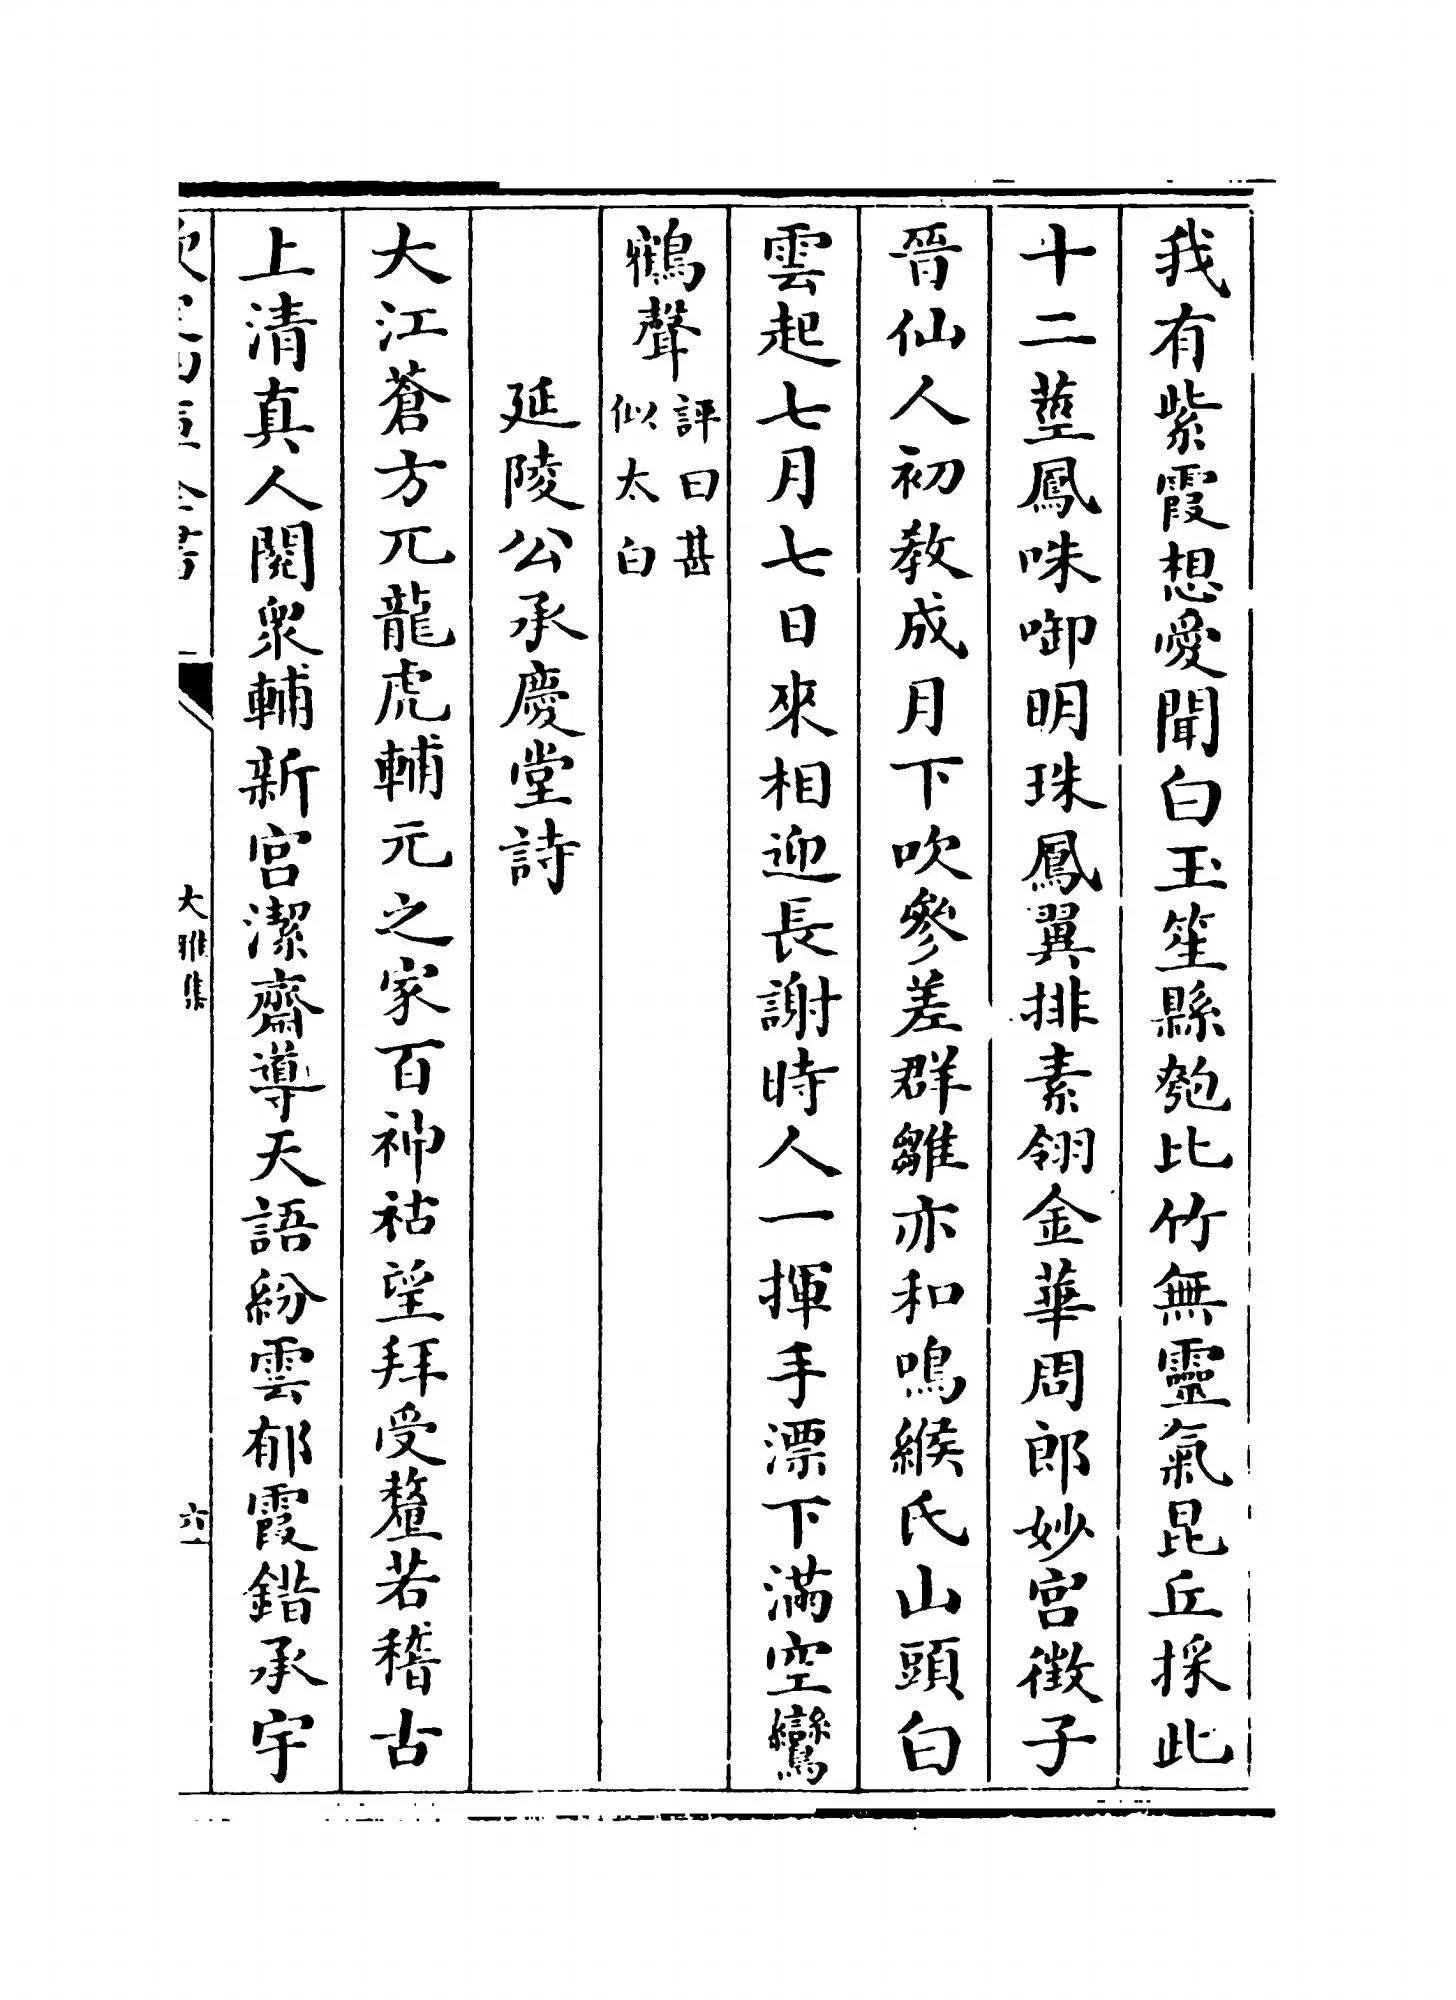 我有紫霞想愛聞白玉笙縣匏比竹無靈氣昆丘採此
十二莖鳳咮啣明珠鳳翼排素翎金華周郎妙宮徵子
晉仙人初教成月下吹參差群雛亦和鳴緱氏山頭白
雲起七月七日來相迎長謝時人一揮手漂下滿空鸞
鶴聲評曰甚
似太白
延陵公承慶堂詩
大江蒼方兀龍虎輔元之家百神祜望拜受釐若稽古
上清真人閱衆輔新宮潔齋導天語紛雲郁霞鍇承宇
欽定四庫全書
大雅集
六